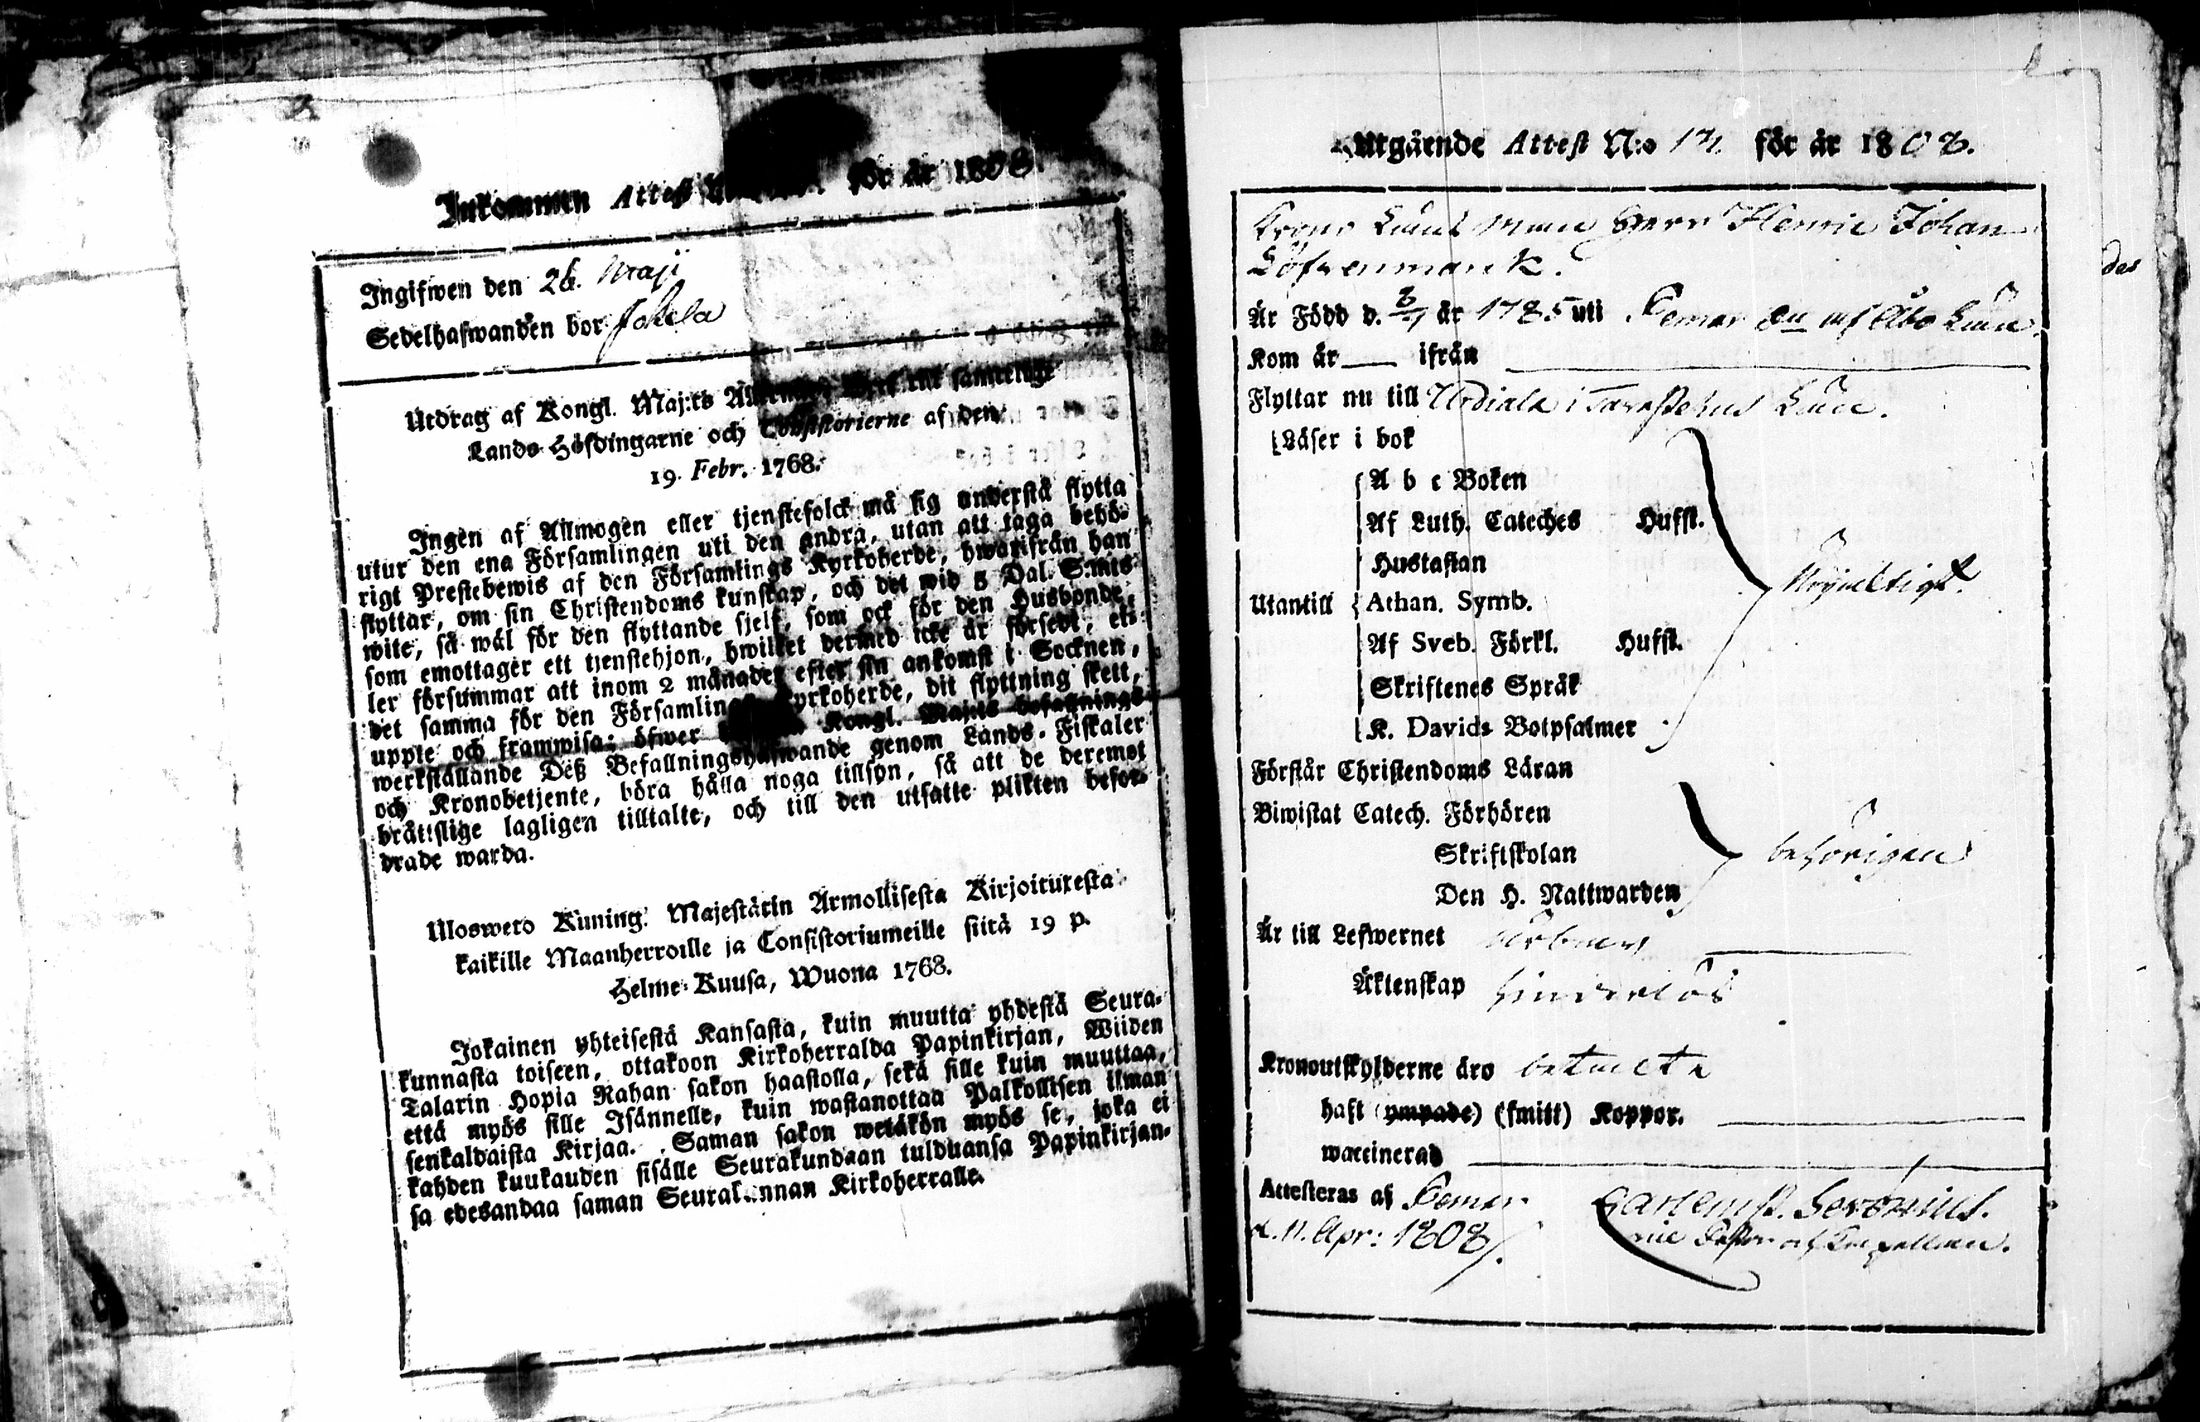 Inkommen Attest för år 1808.
Ingifwen den 26. Maji
Sedelhafwanden bor Jokela
Utdrag af Kongl. Maj:ts samtelige
Lands-Höfdingarne och Consistorierne af den
19. Febr. 1768.
Ingen af Allmogen eller tjenstefolck må sig understå flytta
utur den ena Församlingen uti den andra, utan att taga behö-
rigt Prestebewis af den Församlings Kyrkoherde, hwarifrån han
flyttar, om sin Christendoms kunskap, och det wid 5 Dal. S:mts
wite, så wäl för den flyttande sjelf, som ock för den Husbonde,
som emottager ett tjenstehjon, hwilket dermed icke är försedt, el-
ler försummar att inom 2 månader efter sin ankomst i Socknen,
det samma för den Församlings Kyrkoherde, dit flyttning skett,
uppte och framwisa; öfwer Kongl. Maj:ts befallnings
werkställande Deß Befallningshafwande genom Lands-Fiskaler
och Kronobetjente, böra hålla noga tillsyn, så att de deremot
bråttslige lagligen tilltalte, och till den utsatte plikten befor-
drade warda.
Ulosweto Kuning. Majestärin Armollisesta Kirjoituxesta
kaikille Maanherroille ja Consistoriumeille siitä 19 p.
Helme-Kuusa, Wuona 1768.
Jokainen yhteisestä Kansasta, kuin muutta yhdestä Seura-
kunnasta toiseen, ottakoon Kirkoherralda Papinkirjan, Wiiden
Talarin Hopia Rahan sakon haastolla, sekä sille kuin muuttaa,
että myös sille Isännelle, kuin wastanottaa Palkollisen ilman
senkaldaista Kirjaa. Saman sakon wetäkön myös se, joka ei
kahden kuukauden sisälle Seurakundaan tulduansa Papinkirjan-
sa edesandaa saman Seurakunnan Kirkoherralle.
Utgående Attest N:o 14 för år 1808.
Krono Länsman Herr Henric Johan
Löfvenmark.
Är Född d. 8/7 år 1785 uti Pemar Sn af Åbo Län.
Kom år ifrån
Flyttar nu till Urdiala i Tavastehus Län.
Läser i bok
A b c Boken
Af Luth. Cateches Hufst.
Hustaflan
Utantill Athan. Symb.
Af Sveb. Förkl. Hufst.
Skriftenes Språk
K. Davids Botpsalmer
Förstår Christendoms Läran
Biwistat Catech. Förhören
Skriftskolan behörigen
Den H. Nattwarden
Är till Lefwernet ärbar
Äktenskap hinderlös
Kronoutskylderne äro betalta
haft (ympade) (smitt) Koppor.
waccinerad
Attesteras af Pemar
d. 11. Apr: 1808
des